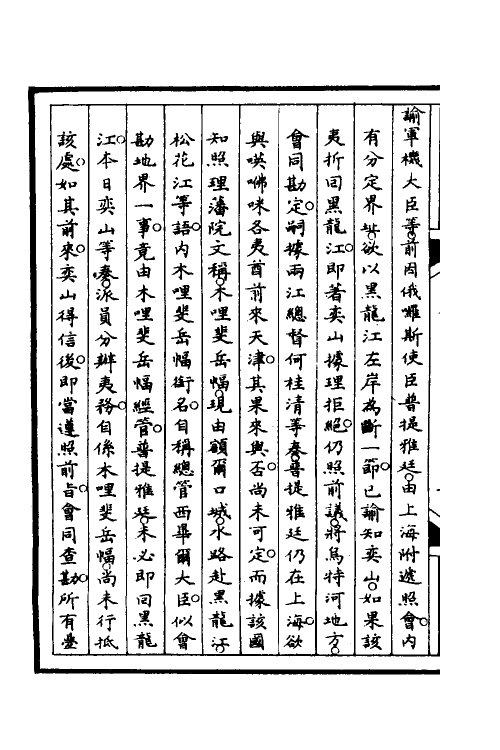 諭軍機大臣等。前因俄囉斯使臣普提雅廷。由上海附遞照會。內
有分定界址。欲以黑龍江左岸為斷一節。已諭知奕山。如果該
夷折回黑龍江。即著奕山據理拒絕。仍照前議。將烏特河地方。
會同勘定。嗣據兩江總督何桂清等奏。普提雅廷仍在上海。欲
與㖤㗶咪各夷酋前來天津。其果來與否。尚未可定。而據該國
知照理藩院文稱。木哩斐岳幅。現由額爾口城。水路赴黑龍江
松花江等語。內木哩斐岳幅銜名。自稱總管西畢爾大臣。似會
勘地界一事。竟由木哩斐岳幅經管。普提雅廷。未必即回黑龍
江。本日奕山等奏。派員分辦夷務。自係木哩斐岳幅。尚未行抵
該處。如其前來。奕山得信後。即當遵照前旨。會同查勘。所有臺